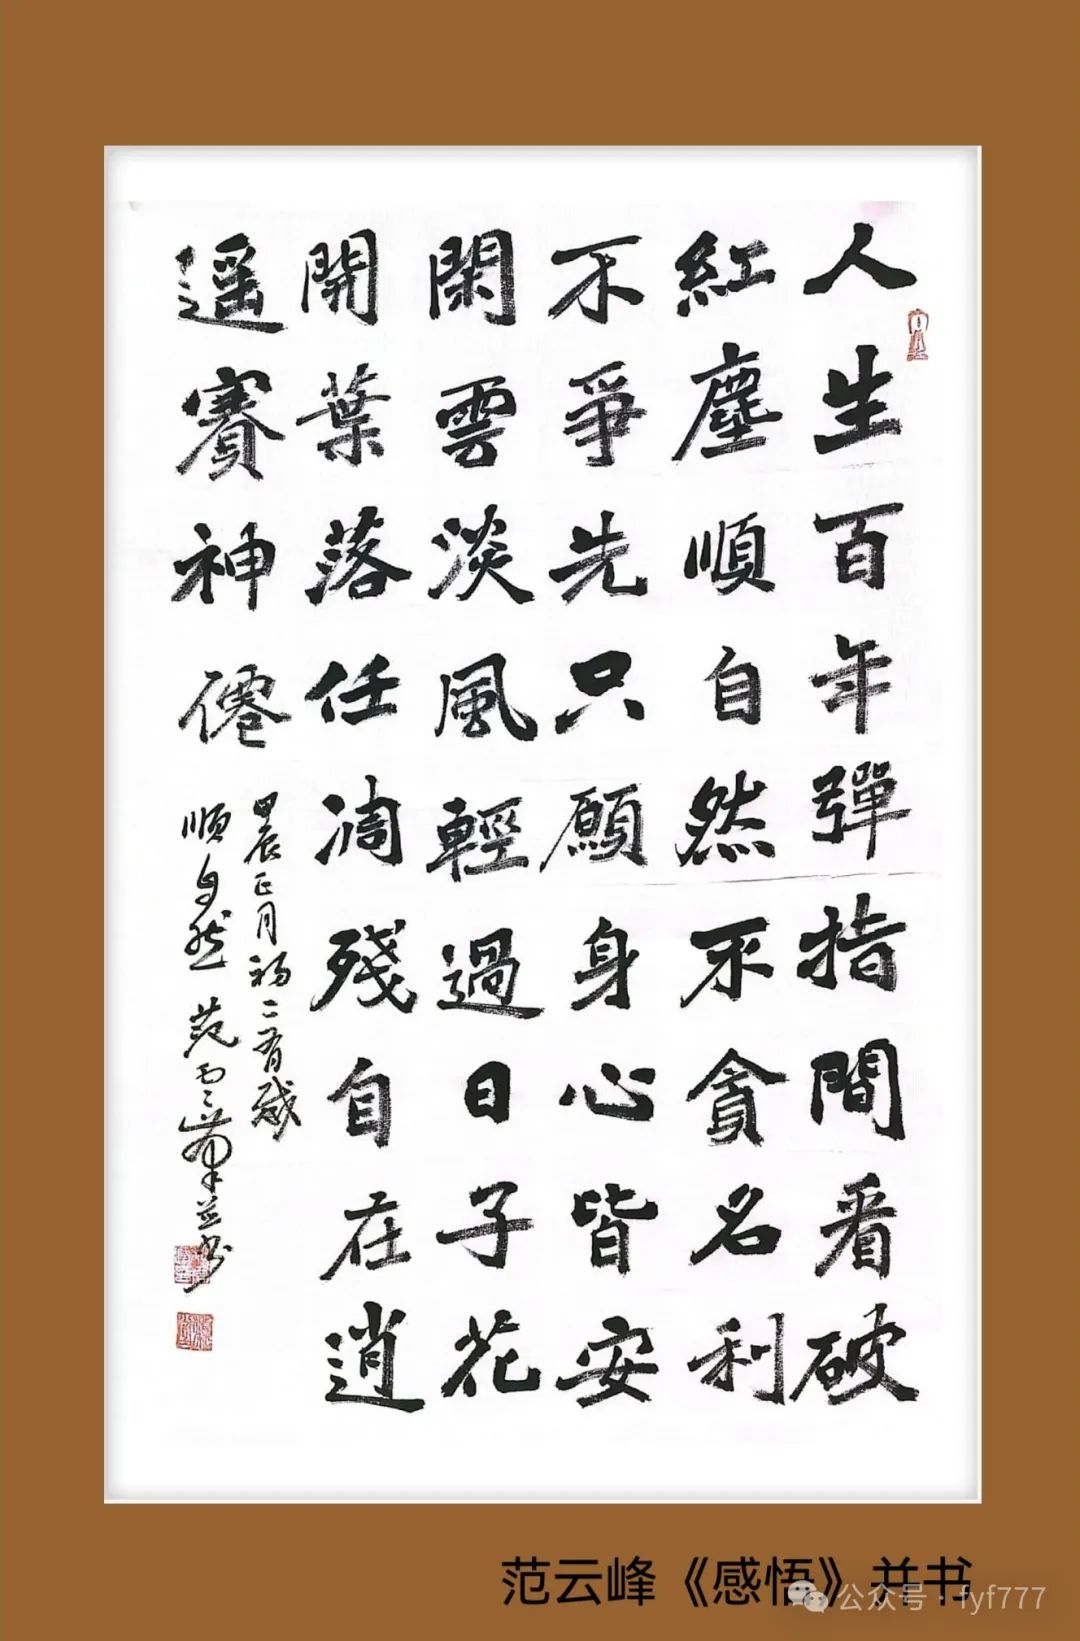 人生百年彈指間看破
紅塵順自然不貪名利
不爭先只願身心皆安
閑雲淡風輕過日子花
開葉落任凋殘自在逍
遥賽神僊
甲辰正月初二有感
順自然 范雲峯并书
范云峰《感悟》并书
公众号·fyf777